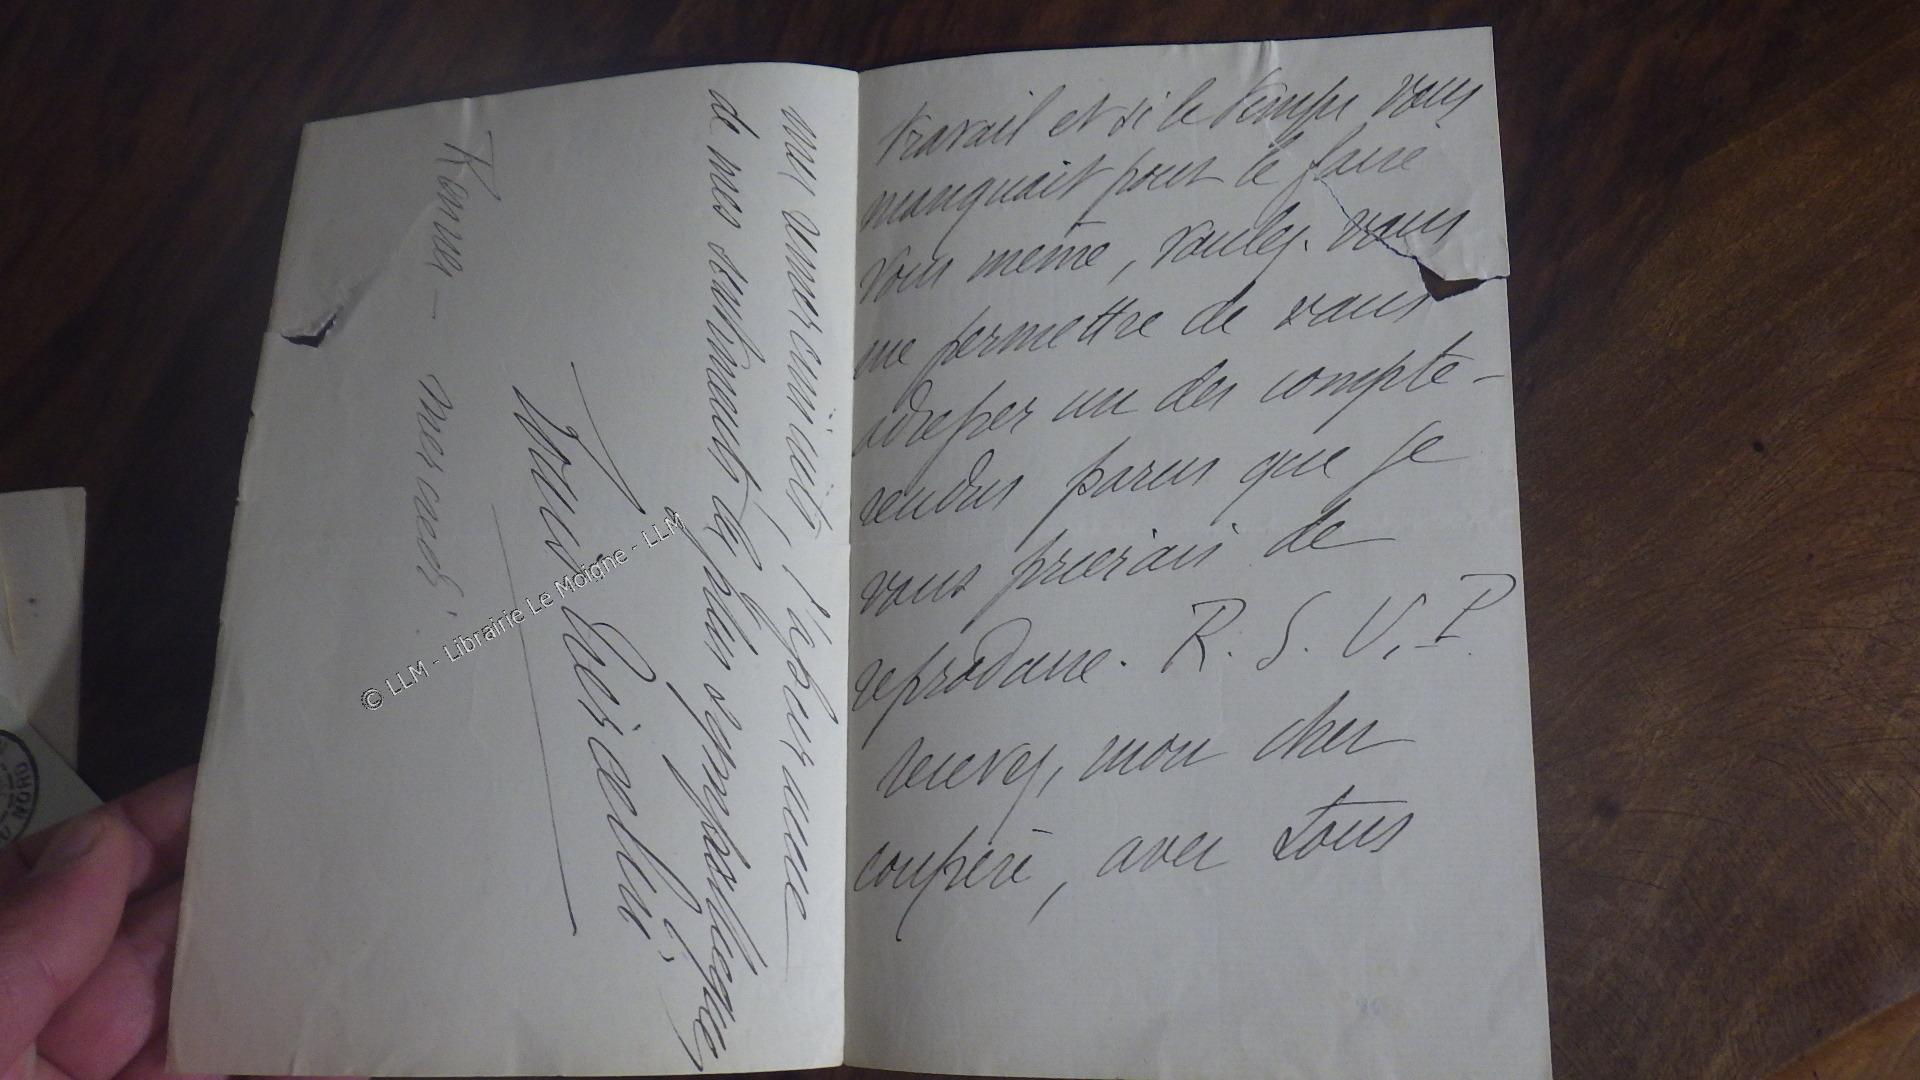 travail et si le temps vous
manquait pour le faire
vous même, voulez-vous
me permettre de vous
adresser un des compte-
rendus parus que je
vous prierais de
reproduire. R. S. V. P.
recevez, mon cher
confrère, avec tous
mes remerciements, l'assurance
de mes sentiments les plus sympathiques
mercredi
© LLM - Librairie Le Moigne - LLM
NORD